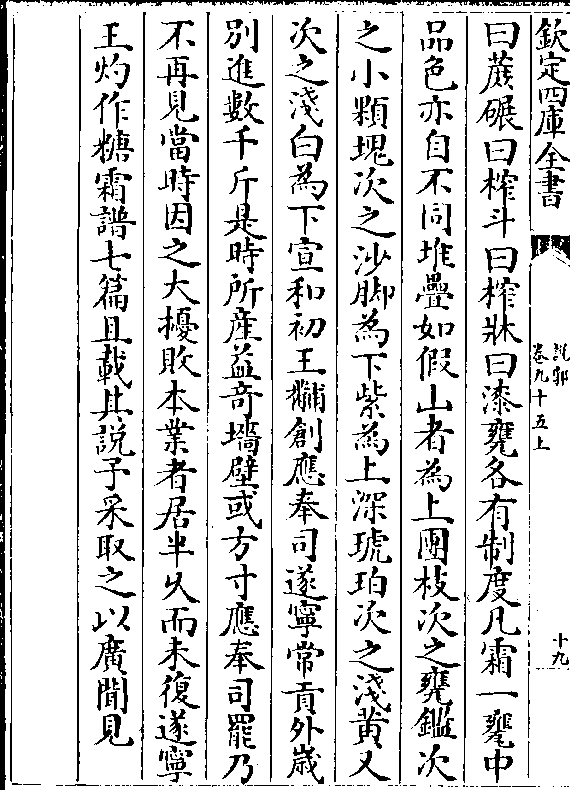 欽定四庫全書
說郛
卷九十五上
十九
曰蔗碾曰榨斗曰榨牀曰漆甕各有制度凡霜一甕中
品色亦自不同堆疊如假山者為上團枝次之甕鑑次
之小顆塊次之沙脚為下紫為上深琥珀次之淺黄又
次之淺白為下宣和初王黼創應奉司遂寧常貢外歳
别進數千斤是時所産益奇墻壁或方寸應奉司罷乃
不再見當時因之大擾敗本業者居半乆而未復遂寧
王灼作糖霜譜七篇且載其說予采取之以廣聞見